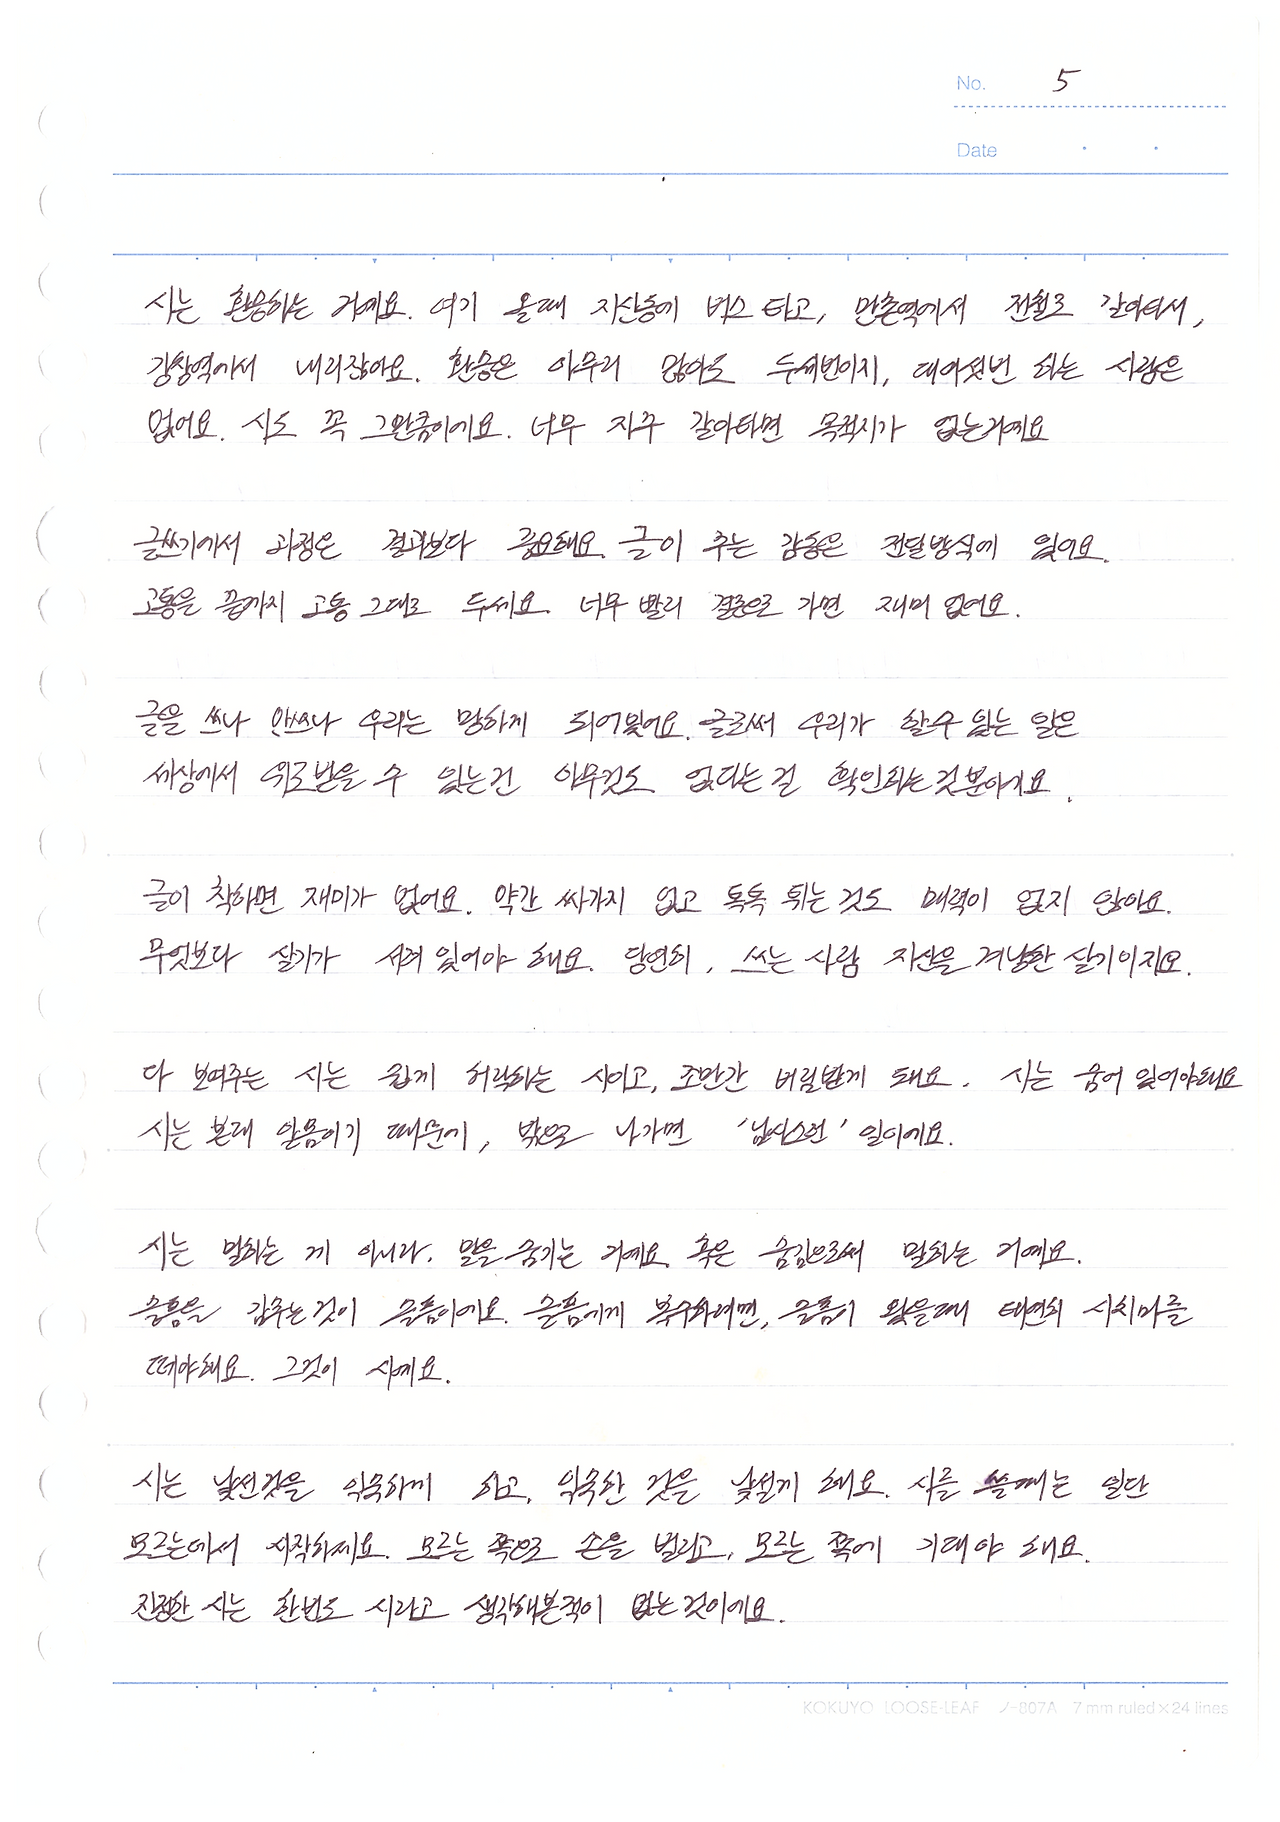 No. 5
Date
시는 환승하는 거예요. 여기 올때 지산동에 버스 타고, 만촌역에서 전철로 갈아타서,
강창역에서 내리잖아요. 환승은 아무리 많아도 두세번이지, 대여섯번 하는 사람은
없어요. 시도 꼭 그만큼이에요. 너무 자주 갈아타면 목적지가 없는거예요
글쓰기에서 과정은 결과보다 중요해요. 글이 주는 감동은 전달방식에 있어요.
고통을 끝까지 고통 그대로 두세요. 너무 빨리 결론으로 가면 재미 없어요.
글을 쓰나 안쓰나 우리는 망하게 되어있어요. 글로써 우리가 할수 있는 일은
세상에서 위로받을 수 있는건 아무것도 없다는걸 확인하는것뿐이지요.
글이 착하면 재미가 없어요. 약간 싸가지 없고 톡톡 튀는것도 매력이 없지 않아요.
무엇보다 살기가 서려 있어야 해요. 당연히, 쓰는 사람 자신을 겨냥한 살기이지요.
다 보여주는 시는 쉽게 허락하는 시이고, 조만간 버림받게 돼요. 시는 숨어 있어야해요
시는 본래 알몸이기 때문에, 밖으로 나가면 '넌센스런' 일이에요.
시는 말하는 게 아니라. 말을 숨기는 거예요. 혹은 숨김으로써 말하는 거예요.
슬픔을 감추는것이 슬픔이에요. 슬픔에게 복수하려면, 슬픔이 왔을때 태연히 시치미를
떼야해요. 그것이 시예요.
시는 낯선것을 익숙하게 하고, 익숙한 것을 낯설게 해요. 시를 쓸때는 일단
모르는데서 시작하세요. 모르는 쪽으로 손을 벌리고, 모르는 쪽에 기대야 해요.
진정한 시는 한번도 시라고 생각해본적이 없는것이에요.
KOKUYO LOOSE-LEAF ノ-807A 7 mm ruled×24 lines